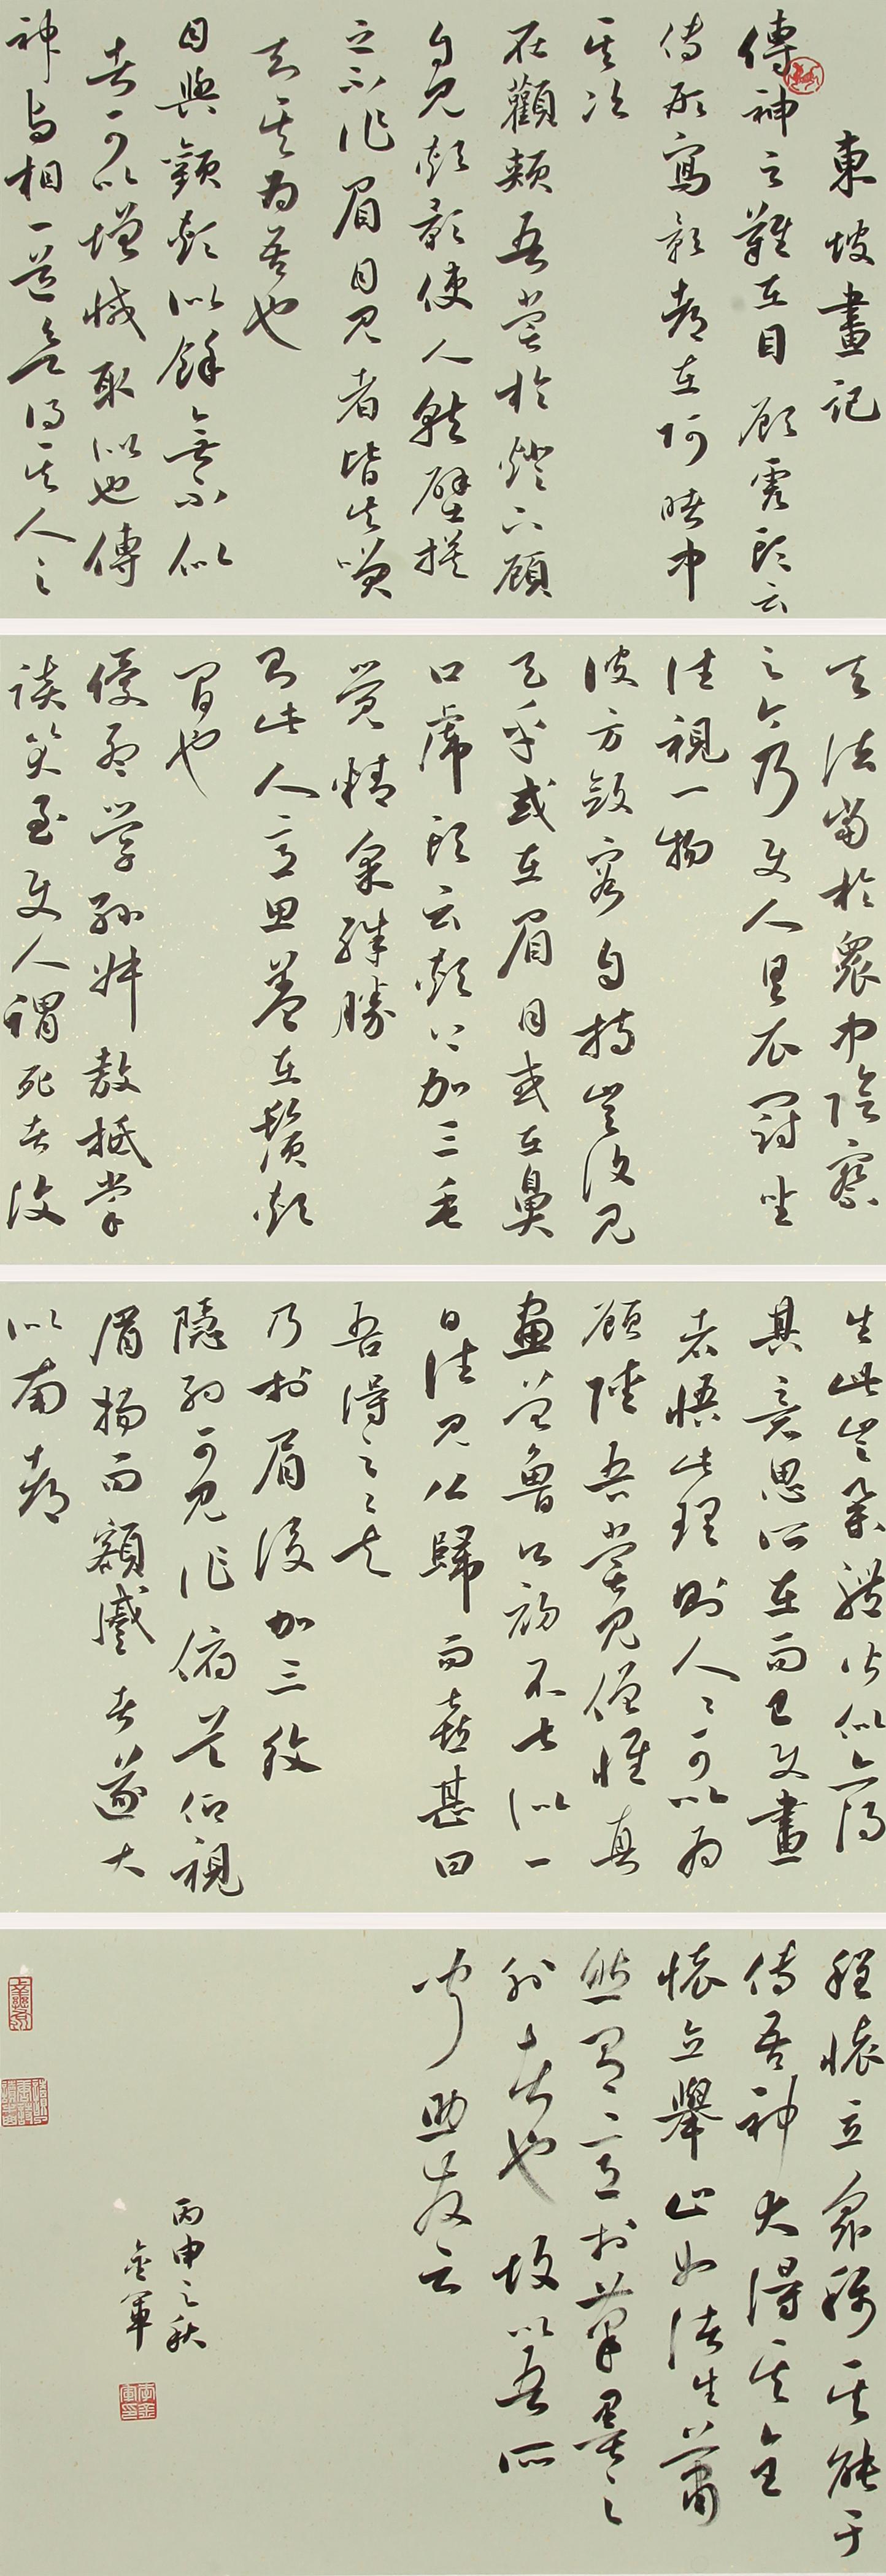 東坡畫記
傳神之難在目顧虎頭云
傳形寫影都在阿睹中
其次
在顴頰吾嘗於燈下顧
自見頰影使人就壁摸
之不作眉目見者皆失笑
知其為吾也
目與顴頰似餘無不似
者可以增減取似也傳
神與相一道欲得其人之
天法當於衆中陰察
之今乃使人具衣冠坐
注視一物
彼方斂容自持豈復見
天乎或在眉目或在鼻
口虎頭云頰上加三毛
覺精采殊勝
則此人意思蓋在鬚頰
間也
優孟學孫叔敖抵掌
談笑至使人謂死者復
生此豈舉體皆似亦得
其意思所在而已使畫
者悟此理則人人可以為
顧陸吾嘗見僧惟真
畫曾魯公初不甚似一
日往見公歸而喜甚曰
吾得之矣
乃於眉後加三紋
隱約可見作俯首仰視
眉揚而額蹙者遂大
似南都
程懷立衆稱其能于
傳吾神大得其全
懷立舉止如諸生蕭
然有意於筆墨之
外者也故以吾所
聞助發云
丙申之秋
金軍